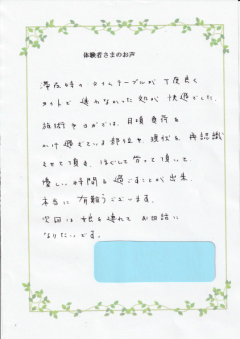 体験者さまのお声
滞在時のタイムテーブルが丁度良く
タイトで遠かなかった処が快適でした。
施術をうけては、日頃負荷を
かけ過ぎている部位を、現状を、再認識
させて頂き、ほぐして労って頂いて、
優しい時間を過ごすことが出来、
本当に有難うございます。
次回は娘を連れてお世話に
なりたいです。